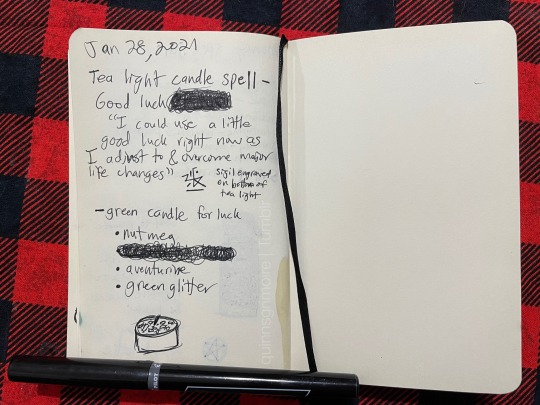 Jan 28, 2021
Tea light candle spell -
Good luck
"I could use a little
good luck right now as
I adjust to & overcome major
life changes"
sigil engraved
on bottom of
tea light
- green candle for luck
• nutmeg
• aventurine
• green glitter